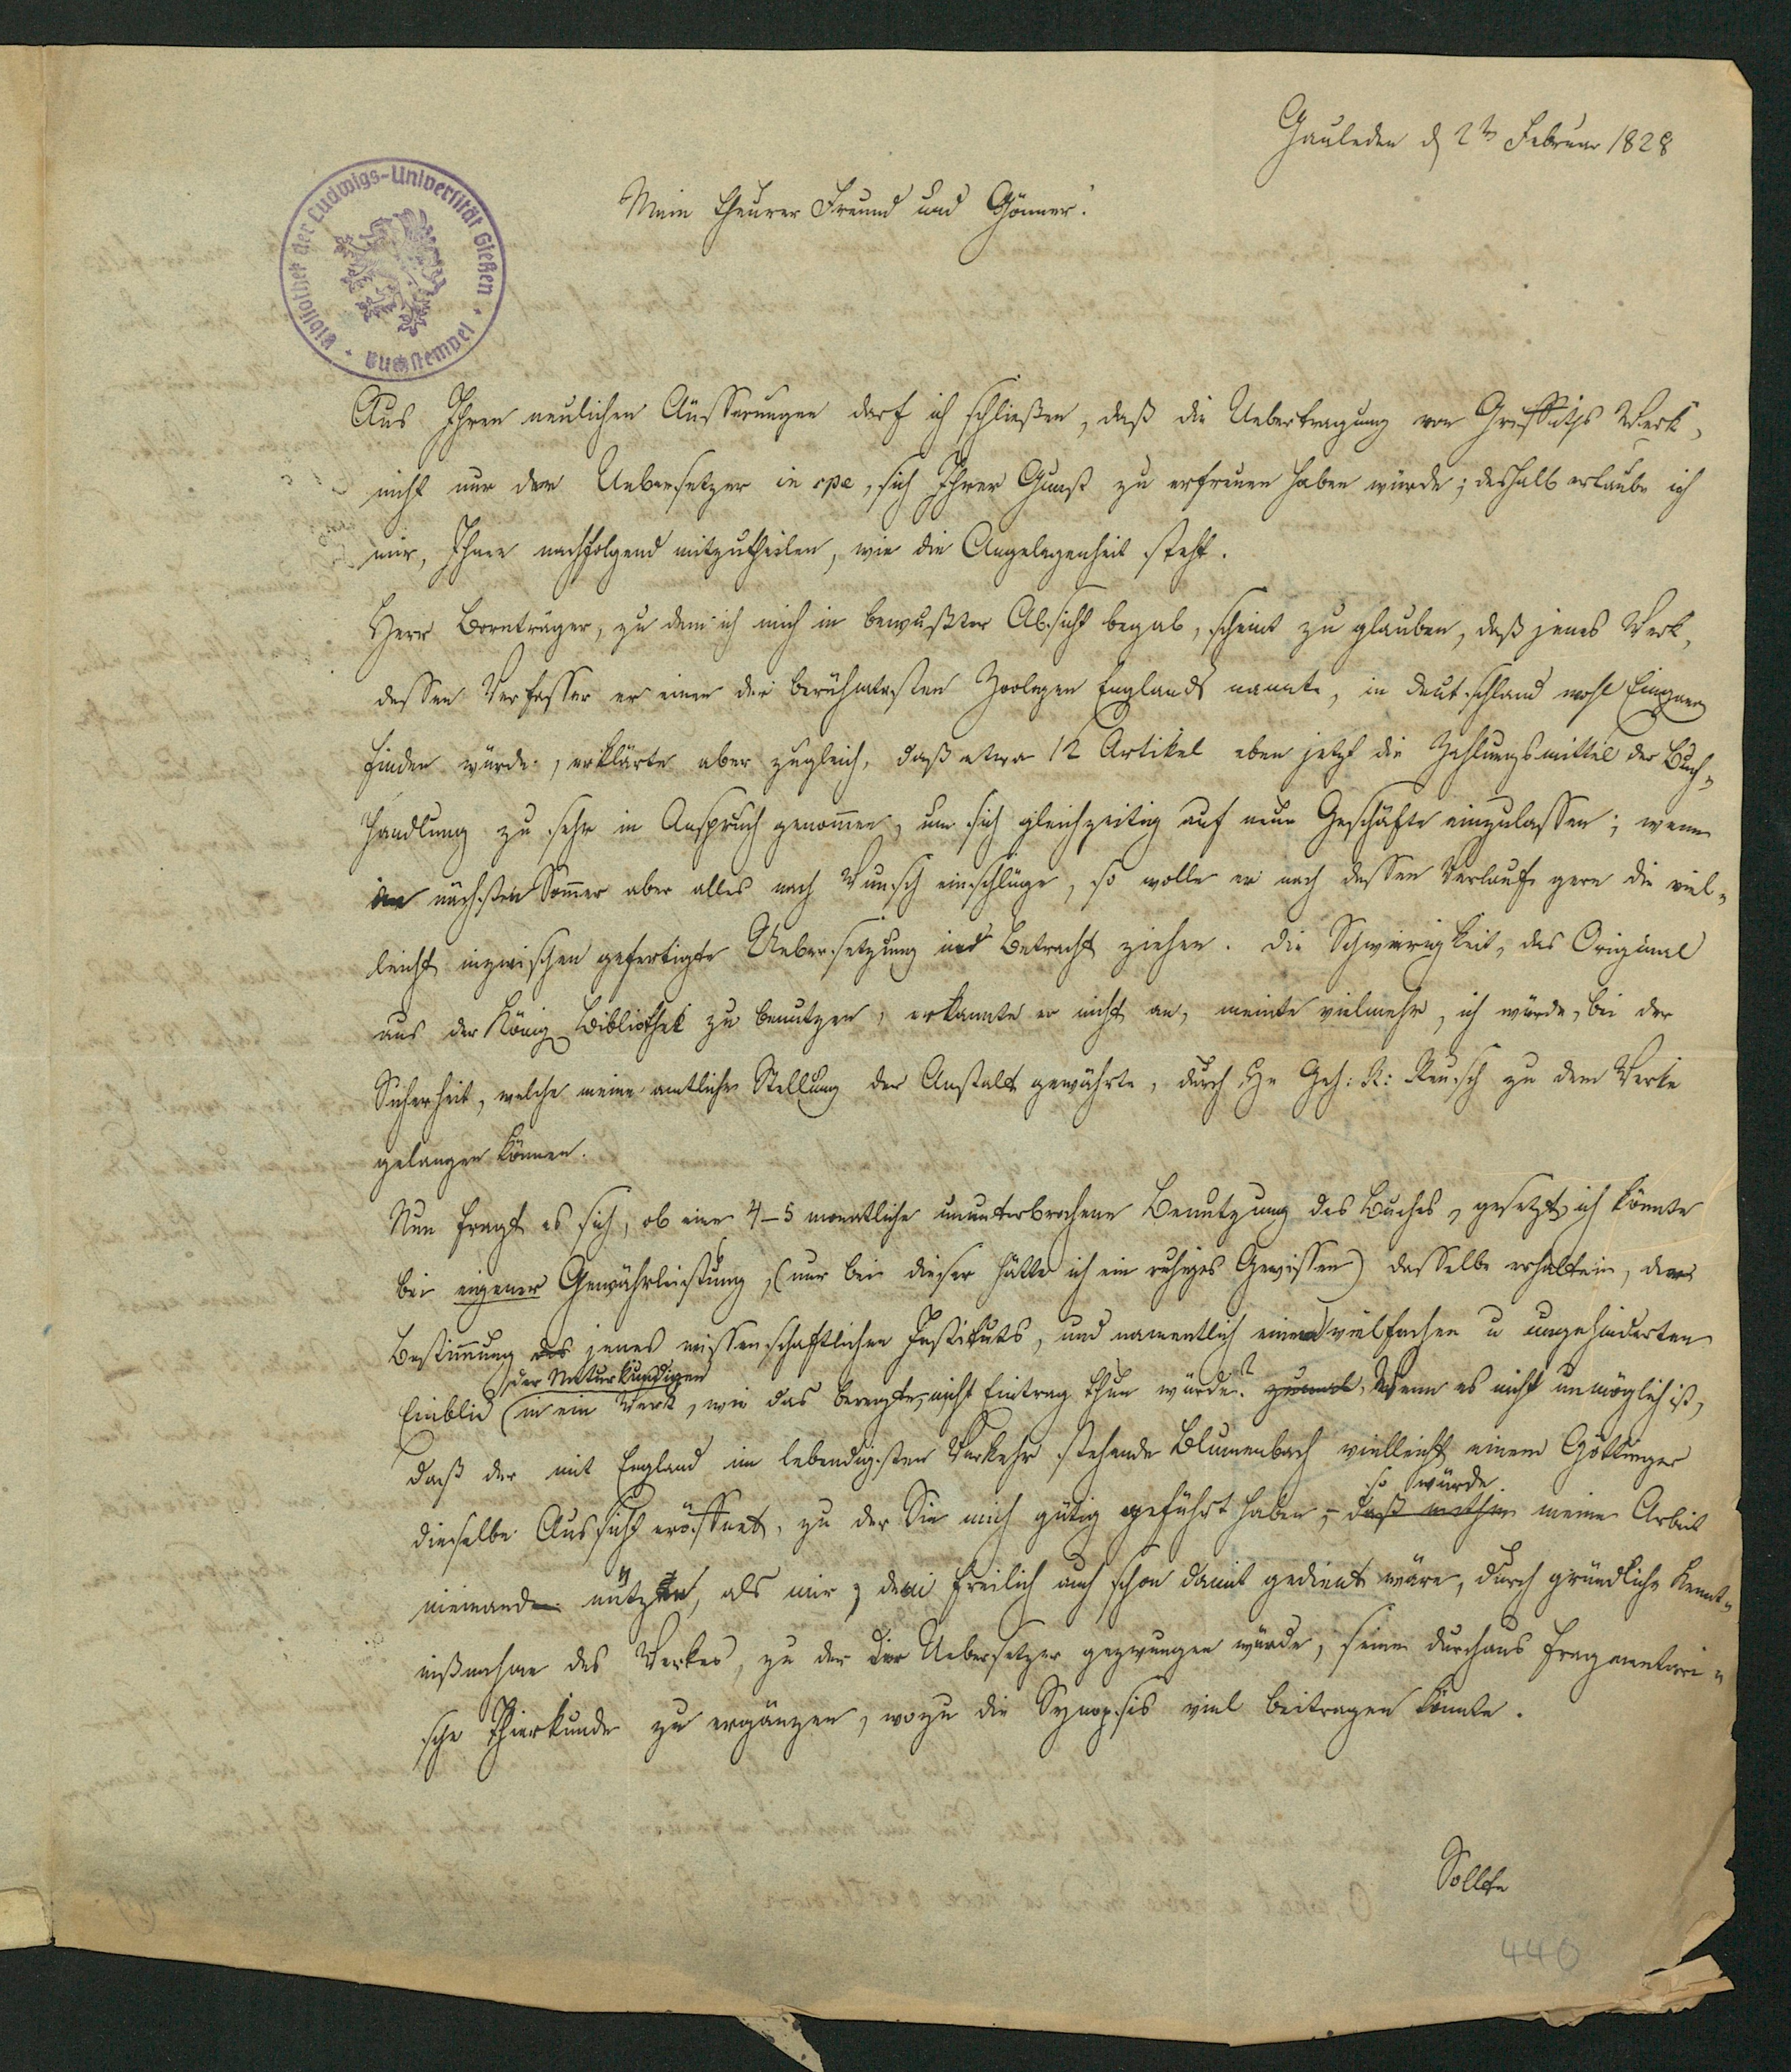 Gauleden d 2t Februar 1828
Mein theurer Freund und Gönner!
Bibliothek der Ludwigs-Universität Gießen · Buchstempel ·
Aus Ihren neulichen Äusserungen darf ich schließen, daß die Uebertragung von Griffiths Werk,
nicht nur der Uebersetzer in spe, sich Ihrer Gunst zu erfreuen haben würde; deshalb erlaube ich
mir, Ihnen nachfolgend mitzutheilen, wie die Angelegenheit steht.
Herr Bornträger, zu dem ich mich in bewußter Absicht begab, scheint zu glauben, daß jenes Werk,
dessen Verfasser er einen der berühmtesten Zoologen Englands nannte, in Deutschland wohl Eingang
finden würde, erklärte aber zugleich, daß etwa 12 Artikel eben jetzt die Zahlungsmittel der Buch-
handlung zu sehr in Anspruch genommen, um sich gleichzeitig auf neue Geschäfte einzulassen; wenn
im nächsten Sommer aber alles nach Wunsch einschlüge, so wolle er nach dessen Verlaufe gern die viel-
leicht inzwischen gefertigte Uebersetzung in Betracht ziehen. Die Schwierigkeit, das Original
aus der König Bibliothek zu benutzen, erkannte er nicht an, meinte vielmehr, ich würde, bei der
Sicherheit, welche meine amtliche Stellung der Anstalt gewährte, durch Hr Geh: R: Reusch zu dem Werke
gelangen können.
Nun fragt es sich, ob eine 4-5 monatliche ununterbrochene Benutzung des Buches, gesetzt ich könnte
bei eigener Gewährleistung, (nur bei dieser hätte ich ein ruhiges Gewissen) dasselbe erhalten, der
Bestimmung des jenes wissenschaftlichen Instituts, und namentlich einem vielfachen u ungehinderten
der Naturkundigen
Einblick in ein Werk, wie das beregte, nicht Eintrag thun würde? Wenn es nicht unmöglich ist,
daß der mit England im lebendigsten Verkehr stehende Blumenbach vielleicht einem Göttinger
so würde
dieselbe Aussicht eröffnet, zu der Sie mich gütig geführt haben, - daß mithin meine Arbeit
niemand nützen, als mir, dem freilich auch schon damit gedient wäre, durch gründliche Kennt-
nißnahme des Werkes, zu der der Uebersetzer gezwungen würde, seine durchaus fragmentari-
sche Thierkunde zu ergänzen, wozu die Synopsis viel beitragen könnte.
Sollte
440